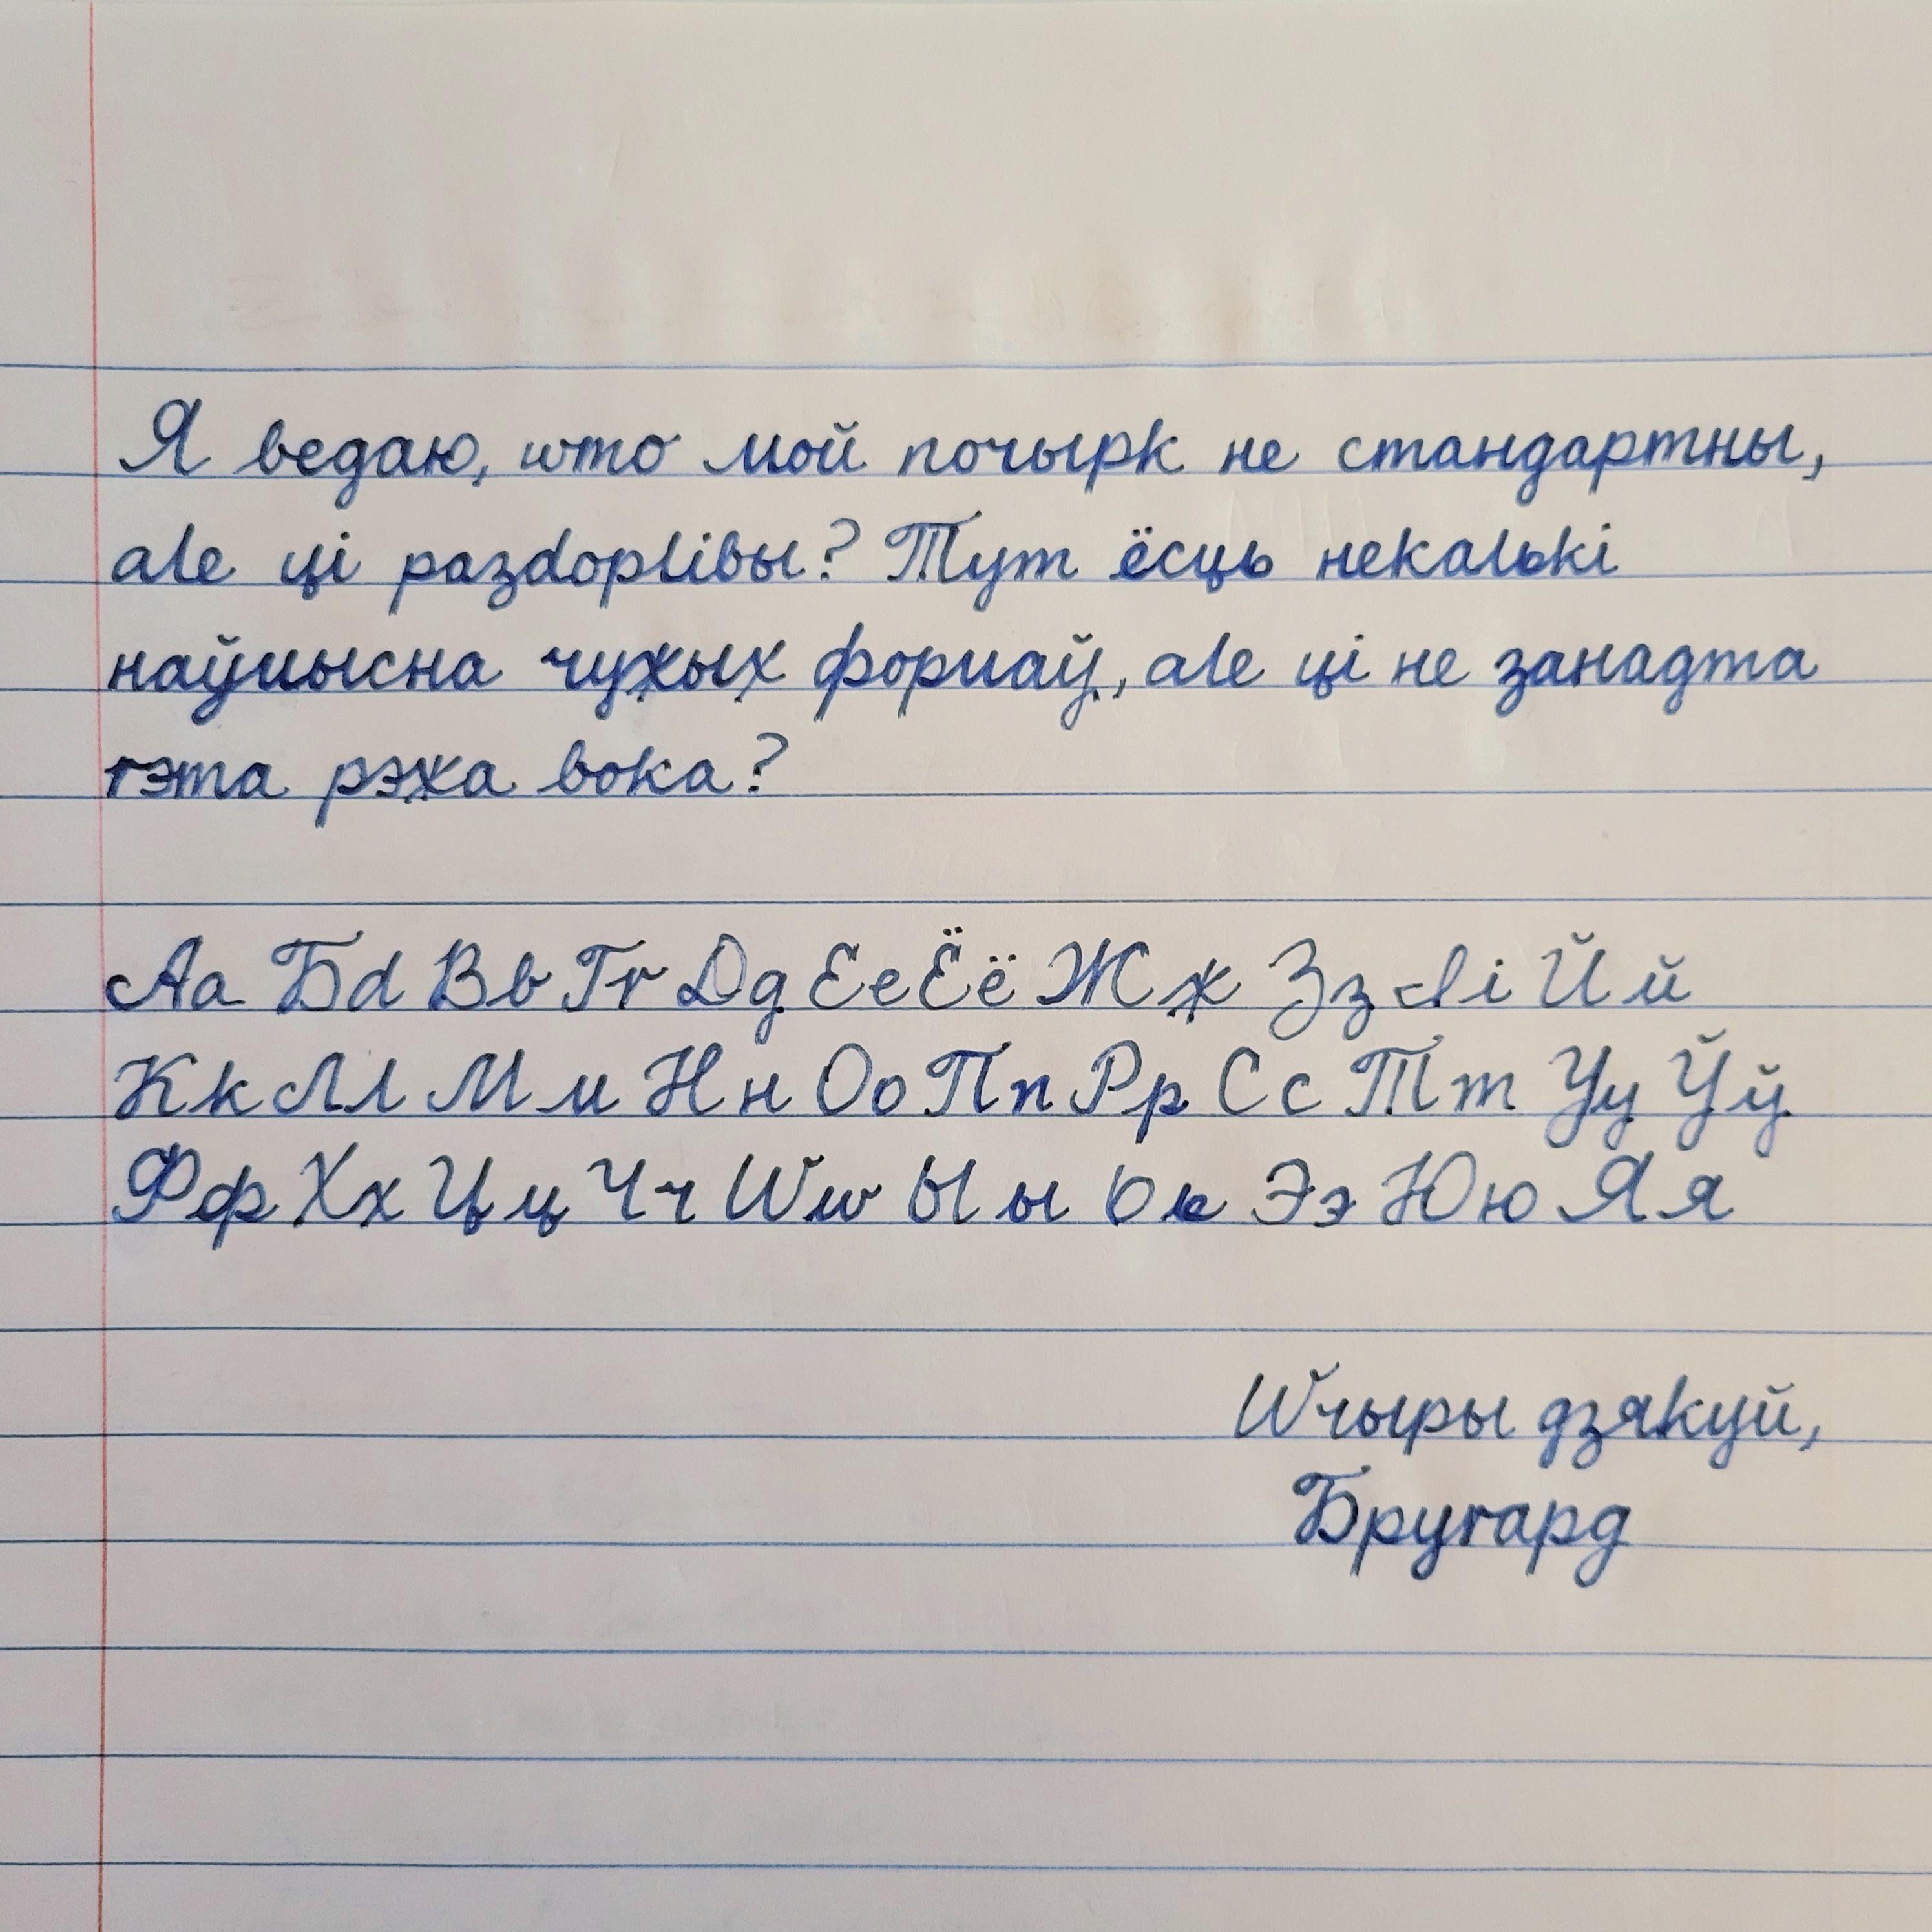 Я ведаю, што мой почырк не стандартны,
але ці разборлівы? Тут ёсць некалькі
наўмысна чужых формаў, але ці не занадта
гэта рэжа вока?
Аа Бб Вв Гг Дд Ее Ёё Жж Зз Іі Йй
Кк Лл Мм Нн Оо Пп Рр Сс Тт Уу Ўў
Фф Хх Цц Чч Шш Ыы Ьь Ээ Юю Яя
Шчыры дзякуй,
Бругард